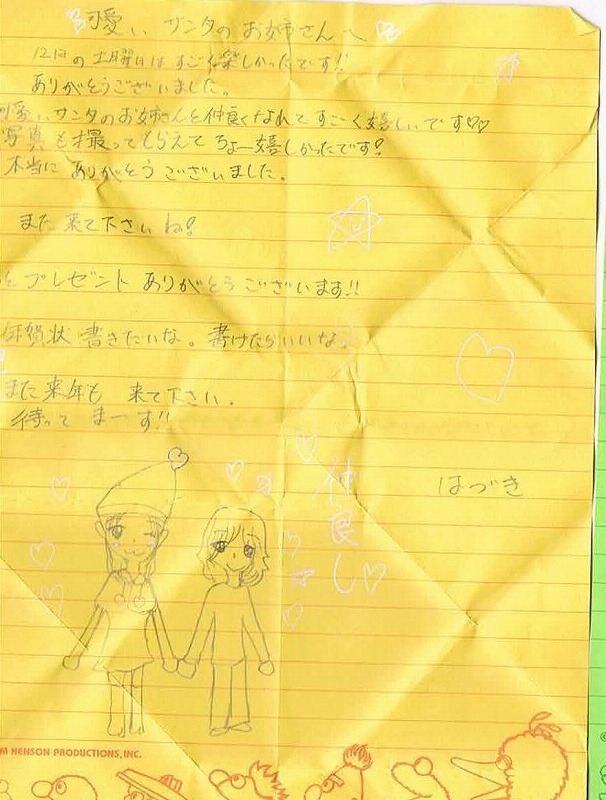 可愛いサンタのお姉さんへ
12日の土曜日はすごく楽しかったです!!
ありがとうございました。
可愛いサンタのお姉さんと仲良くなれてすごく嬉しいです♡♡
写真も撮ってもらえてちょー嬉しかったです!
本当にありがとうございました。
また来て下さいね!
プレゼントありがとうございます!!
年賀状書きたいな。書けたらいいな
また来年も来て下さい。
待ってまーす!!
はづき
仲良し♡
M HENSON PRODUCTIONS, INC.